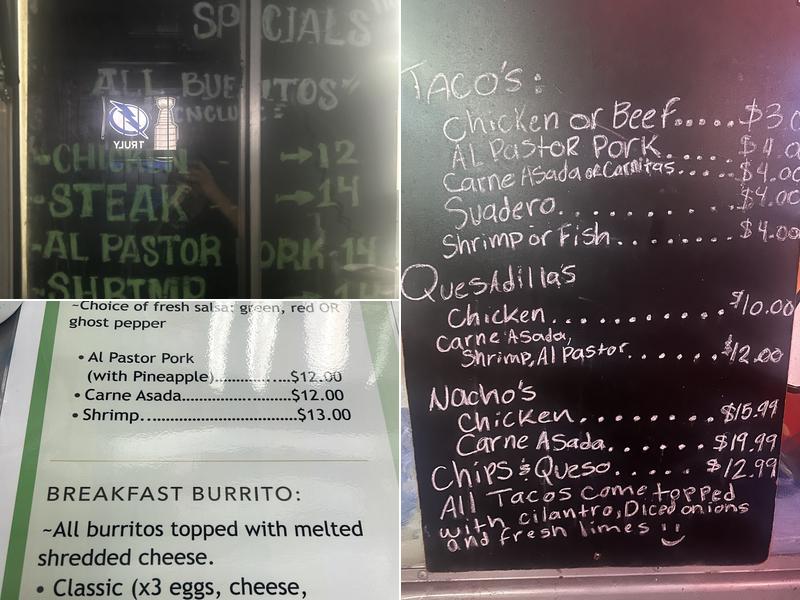 SPECIALS
ALL BURRITOS"
INCLUDE
TRULY
-CHICKEN - →12
-STEAK →14
-AL PASTOR PORK-14
-SHRIMP
~Choice of fresh salsa: green, red OR
ghost pepper
• Al Pastor Pork
(with Pineapple)..................$12.00
• Carne Asada.......................$12.00
• Shrimp..............................$13.00
BREAKFAST BURRITO:
~All burritos topped with melted
shredded cheese.
• Classic (x3 eggs, cheese,
TACO'S:
Chicken or Beef.....$3.0
AL PastoR PoRk......$4.0
Carne Asada or Carnitas....$4.00
Suadero.........$4.00
Shrimp or Fish......$4.00
QuesAdilla's
Chicken...........$10.00
Carne Asada,
Shrimp, Al Pastor......$12.00
Nacho's
Chicken........$15.99
Carne Asada......$19.99
Chips & Queso.....$12.99
All Tacos come topped
with cilantro, Diced onions
and fresh limes